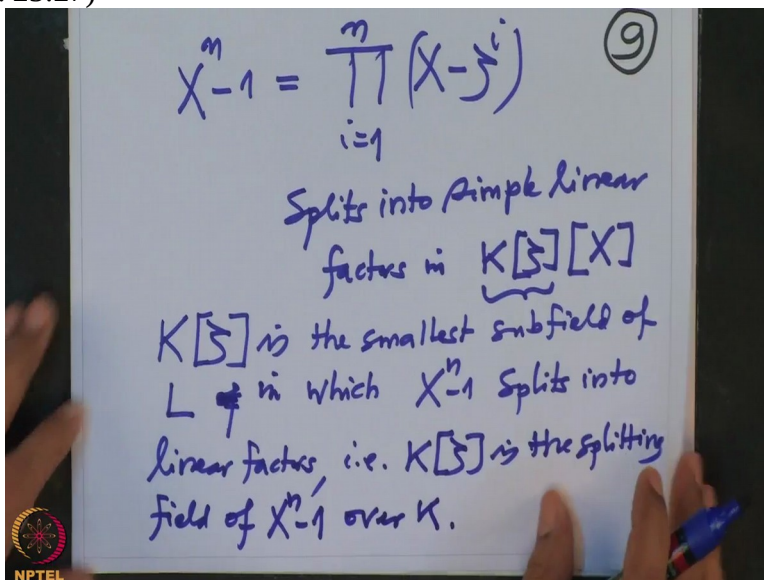 23.27)
⑨
Xⁿ-1 = ∏ᵢ₌₁ⁿ (X-ζⁱ)
Splits into simple linear
factors in K[ζ][X]
K[ζ] is the smallest subfield of
L in which Xⁿ-1 splits into
linear factors, i.e. K[ζ] is the splitting
field of Xⁿ-1 over K.
NPTEL